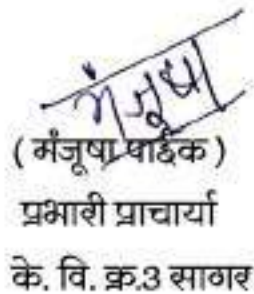 मंजूषा
( मंजूषा पाईक )
प्रभारी प्राचार्या
के. वि. क्र.3 सागर